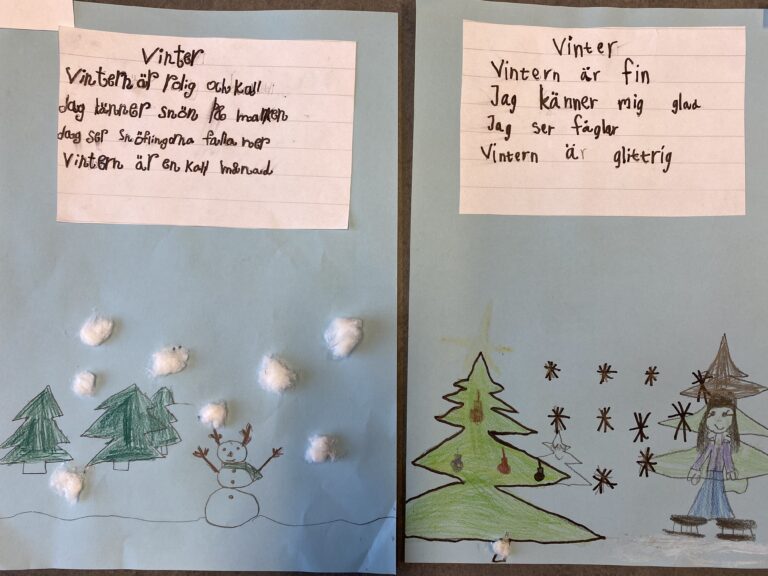 Vinter
Vintern är rolig och kall
Jag känner snön på marken
Jag ser snöflingorna falla ner
Vintern är en kall månad
Vinter
Vintern är fin
Jag känner mig glad
Jag ser fåglar
Vintern är glittrig